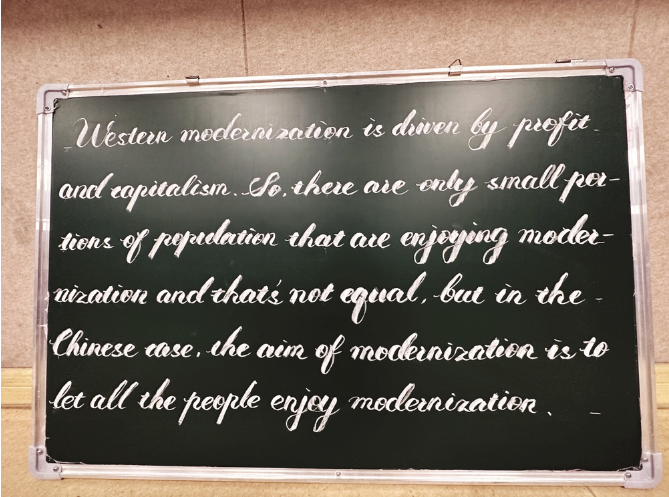 Western modernization is driven by profit
and capitalism. So, there are only small por-
tions of population that are enjoying moder-
nization and that's not equal, but in the
Chinese case, the aim of modernization is to
let all the people enjoy modernization.